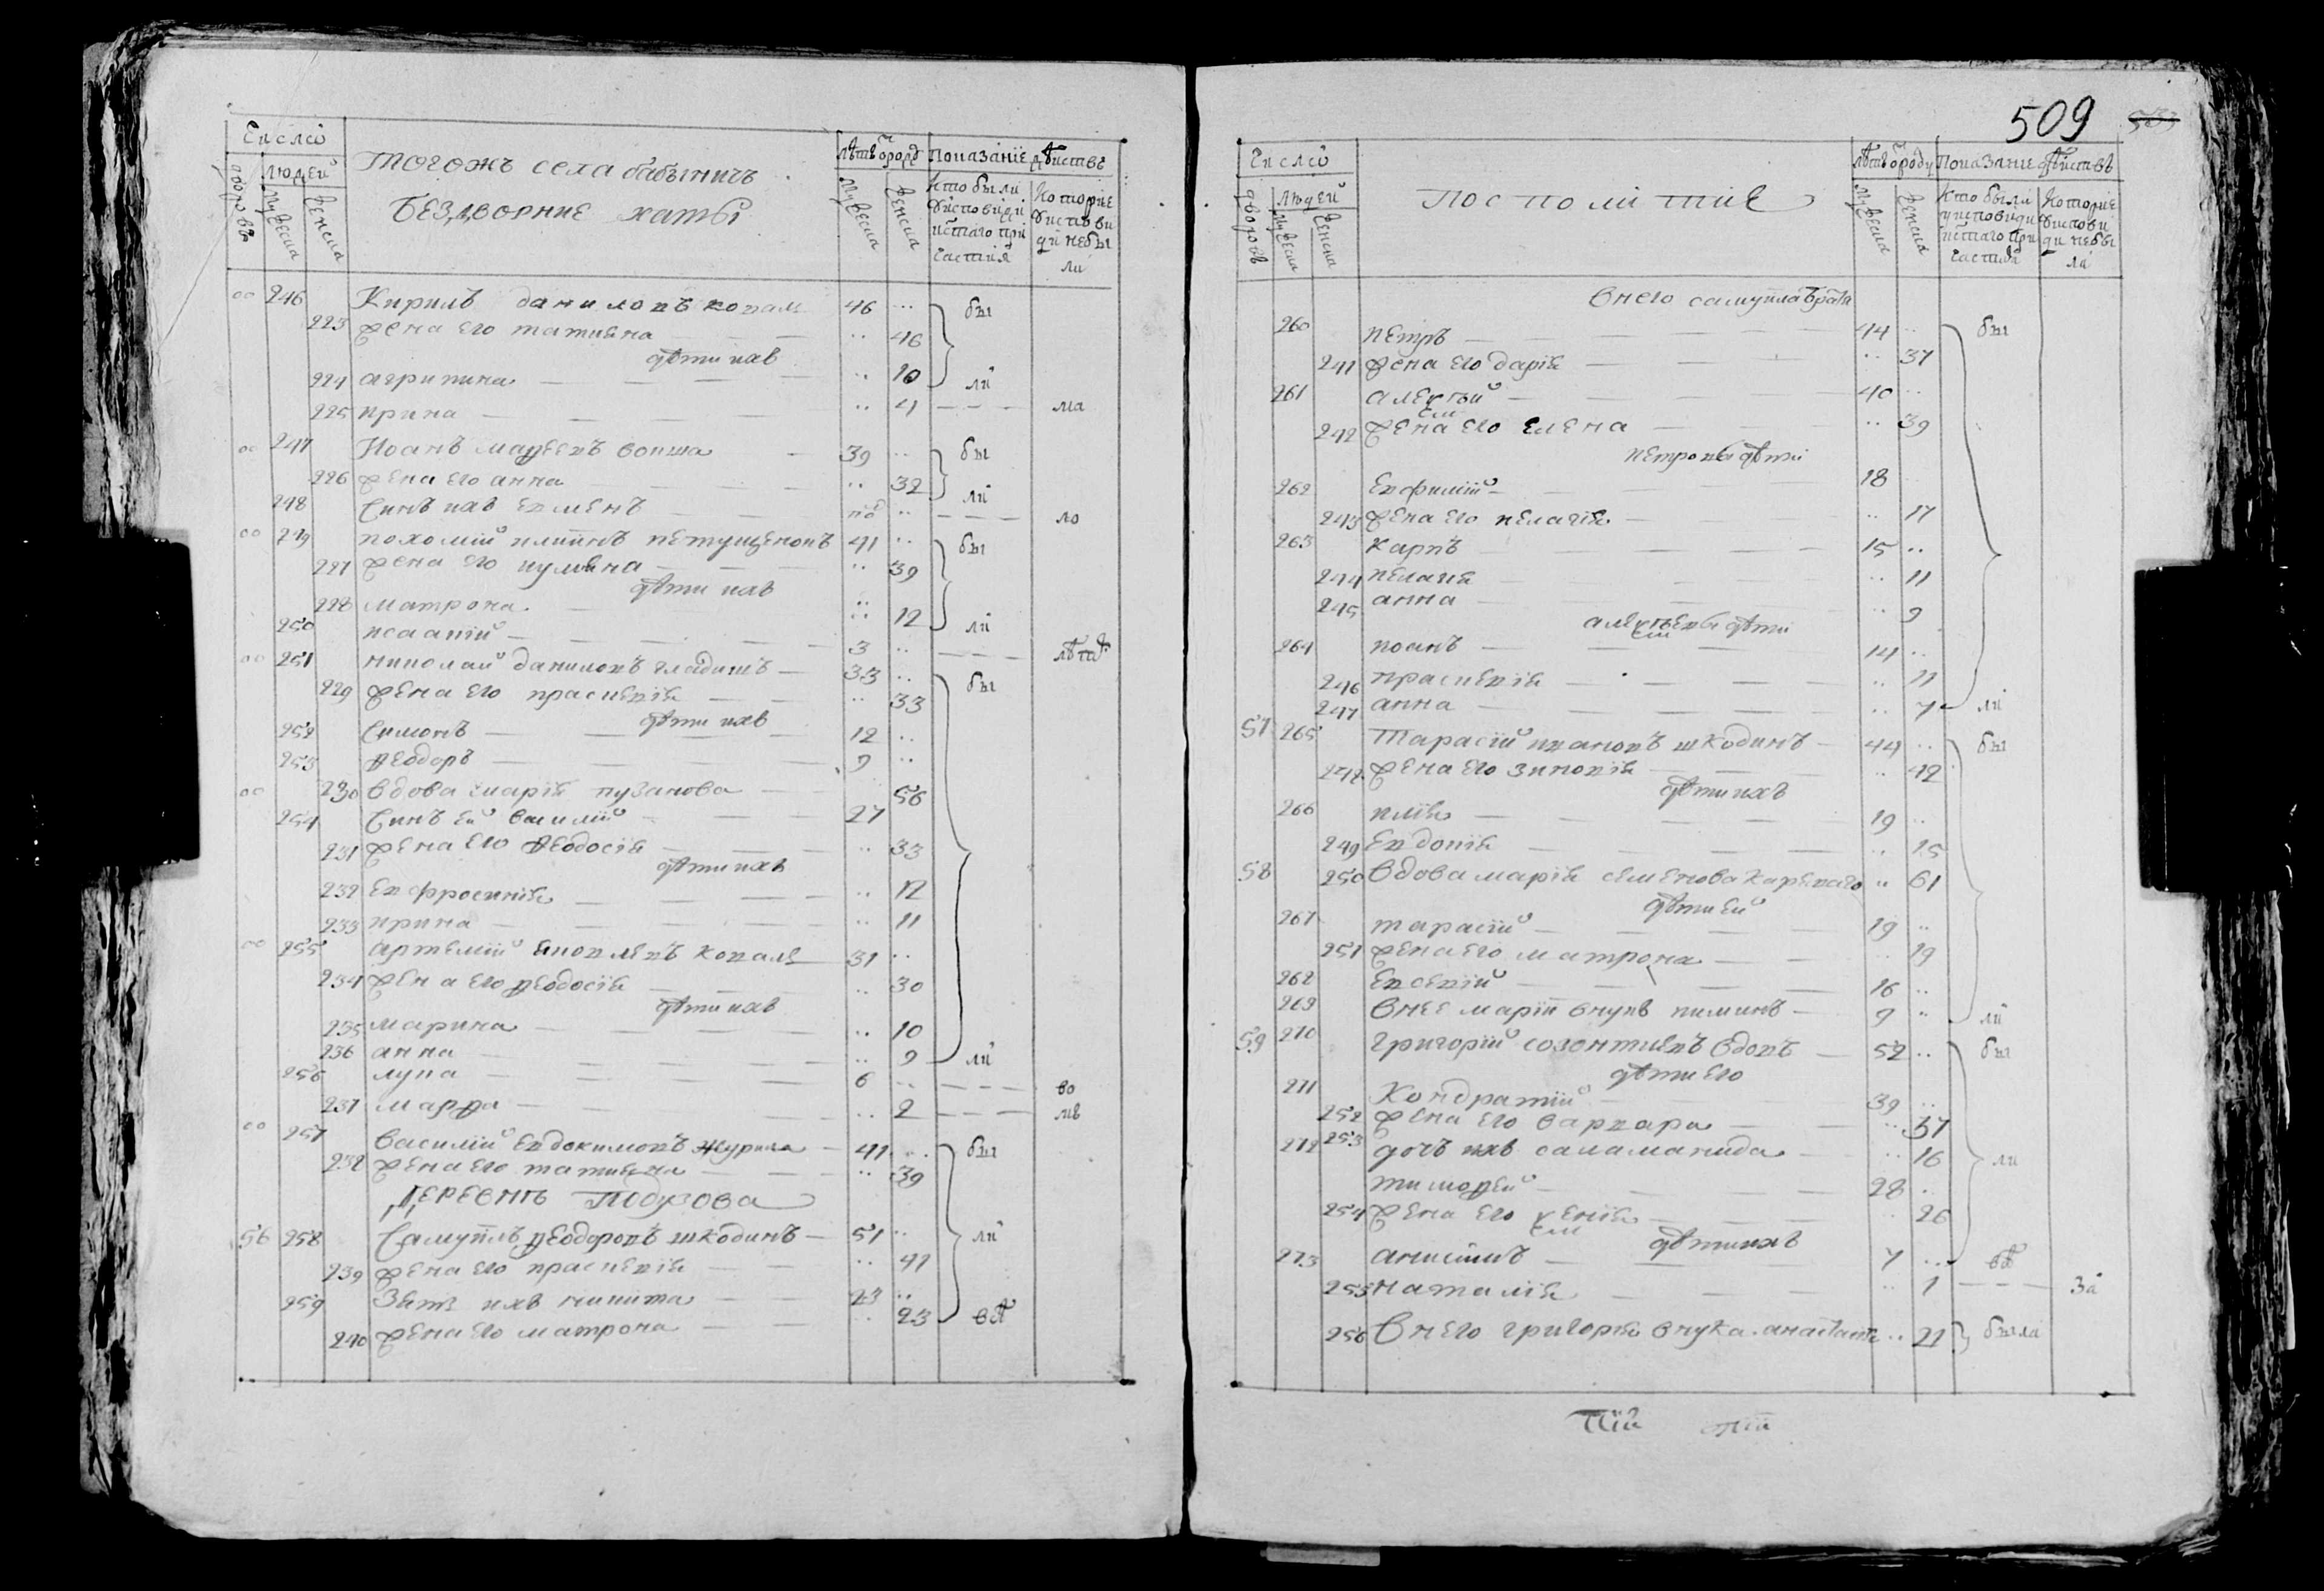 Число
Тогожъ села бабыничъ
Бездворние хаты
Лѣтъ от роду
Показание дѣиствъ
дворовъ
людей
мужеска
женска
мужеска
женска
кто были у исповѣди и с̃таго причастия
которие у исповиди небыли
246 Кирилъ даниловъ коваль 46 бы
223 жена его татияна 46
дѣти ихъ
224 агрипина 10 ли
225 ирина 4 ма
247 Иоанъ матѳеевъ воиша 39 бы
226 жена его анна 32 ли
248 Синъ ихъ евменъ ло
249 похомий илиинъ петущенокъ 41 бы
227 жена его иулияна 39
дѣти ихъ
228 матрона 12 ли
250 исаакий 3 лѣтъ
251 николай даниловъ гладишъ 33 бы
229 жена его праскевия 33
дѣти ихъ
252 Симонъ 12
253 ѳеодоръ 9
230 вдова мария пузанова 56
254 Синъ ей василий 27
231 жена его ѳеодосия 33
дѣти ихъ
232 Евфросиния 12
233 ирина 11
255 артемий иаковлевъ коваль 31
234 жена его ѳеодосия 30
дѣти ихъ
235 марина 10
236 анна 9 ли
256 лука 6 во
237 марѳа 2 лѣ
257 василий Евдокимовъ журила 41 бы
238 жена его татияна 39
Деревнѣ Подузова
56 258 Самуилъ ѳеодоровъ шкодинъ 51 ли
239 жена его праскевия 41
259 Зять ихъ никита 23
240 жена его матрона 23 вѣ
509
Число
Посполитие
Лѣтъ от роду
Показание дѣиствъ
дворовъ
людей
мужеска
женска
мужеска
женска
кто были у исповиди и с̃таго причастия
которие у исповиди небыли
в него самуила брата
260 петръ 44 бы
241 жена его дария 37
261 алеѯий 40
242 жена его Елена 39
петровы дѣти
262 Евфимий 18
243 жена его пелагия 17
263 карпъ 15
244 пелагия 11
245 анна 9
алеѯиевы дѣти
264 иоанъ 14
246 праскевия 11
247 анна 7 ли
57 265 Тарасий ивановъ шкодинъ 44 бы
248 жена его зиновия 42
дѣти ихъ
266 илия 19
249 Евдокия 15
58 250 Вдова мария семенова карецкаго 61
дѣти ей
267 тарасий 19
251 жена его матрона 19
268 Евсевий 16
269 внее марии внукъ пиминъ 9 ли
59 270 Григорий созонтиевъ вдовъ 52 бы
дѣти его
271 Кондратий 39
252 жена его варвара 37
272 253 дочъ ихъ саламанида 16 ли
тимоѳей 28
254 жена его ѯения 26
дѣти ихъ
273 анисимъ 7 вѣ
255 наталия 1 за
256 В него григория внука анастасия 21 была